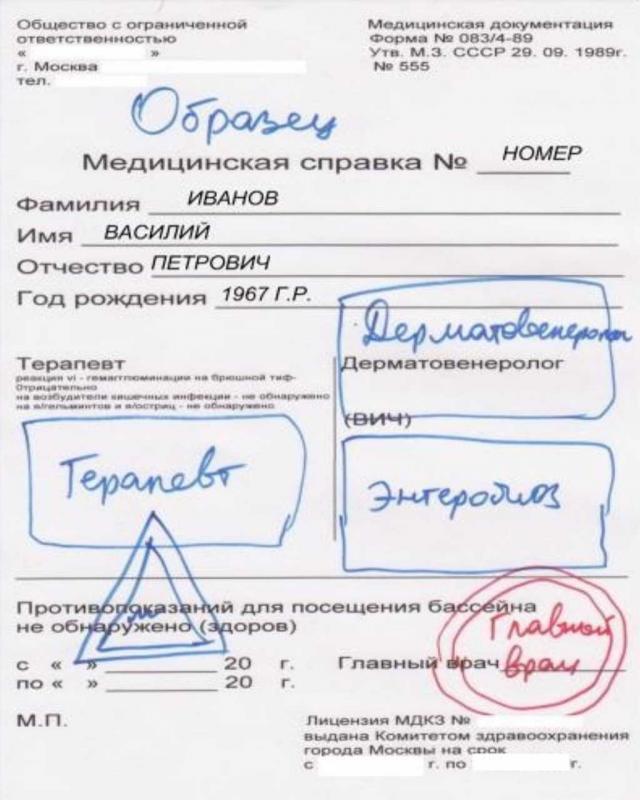 Общество с ограниченной
ответственностью
« »
г. Москва
тел.
Медицинская документация
Форма № 083/4-89
Утв. М.З. СССР 29. 09. 1989г.
№ 555
Образец
Медицинская справка № НОМЕР
Фамилия ИВАНОВ
Имя ВАСИЛИЙ
Отчество ПЕТРОВИЧ
Год рождения 1967 Г.Р.
Дерматовенеролог
Терапевт
реакция vi - гемагглюминации на брюшной тиф-
Отрицательно
на возбудители кишечных инфекции - не обнаружено
на я/гельминтов и я/остриц - не обнаружено
Дерматовенеролог
(ВИЧ)
Терапевт
Энтеробиоз
Противопоказаний для посещения бассейна
не обнаружено (здоров)
Главный
врач
с « » 20 г.
по « » 20 г.
Главный врач
М.П.
Лицензия МДКЗ №
выдана Комитетом здравоохранения
города Москвы на срок
с г. по г.